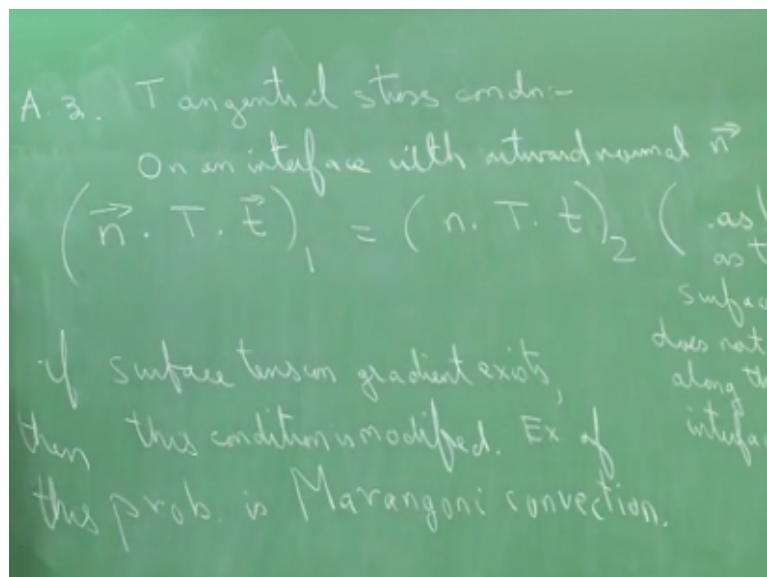 A.3. Tangential stress condn:-
On an interface with outward normal n⃗
(n⃗ . T . t⃗)₁ = (n . T . t)₂ (as
as
surfac
does not
along th
interfac
if surface tension gradient exists,
then this condition is modified. Ex of
this prob. is Marangoni convection.